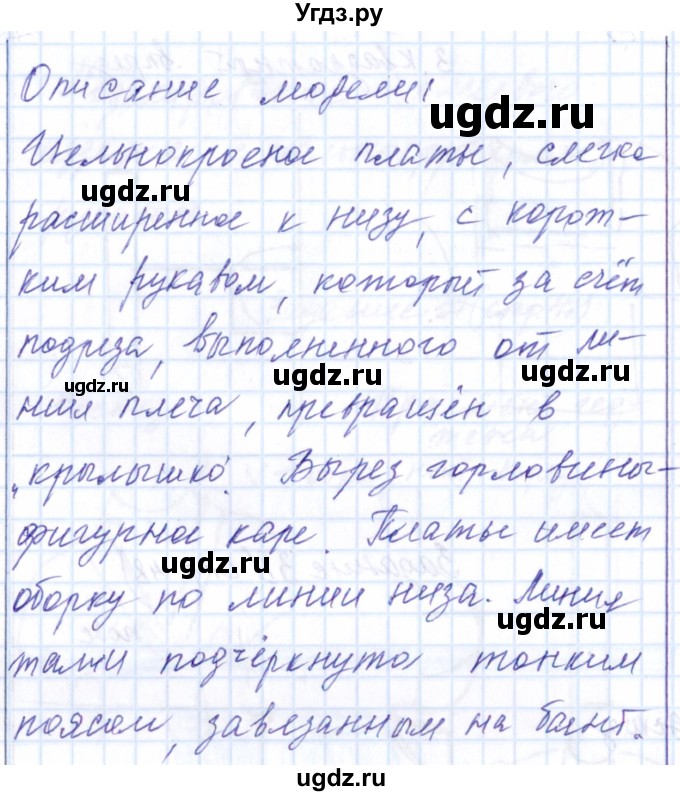 Угдз.ру
Описание модели:
ugdz.ru
Цельнокроеное платье, слегка
ugdz.ru
расширенное к низу, с корот-
ким рукавом, который за счёт
подреза, выполненного от ли-
ugdz.ru
ugdz.ru
нии плеча, превращён в
„крылышко“. Вырез горловины-
фигурное каре. Платье имеет
ugdz.ru
оборку по линии низа. Линия
талии подчёркнута тонким
поясом, завязанным на бант.
ugdz.ru